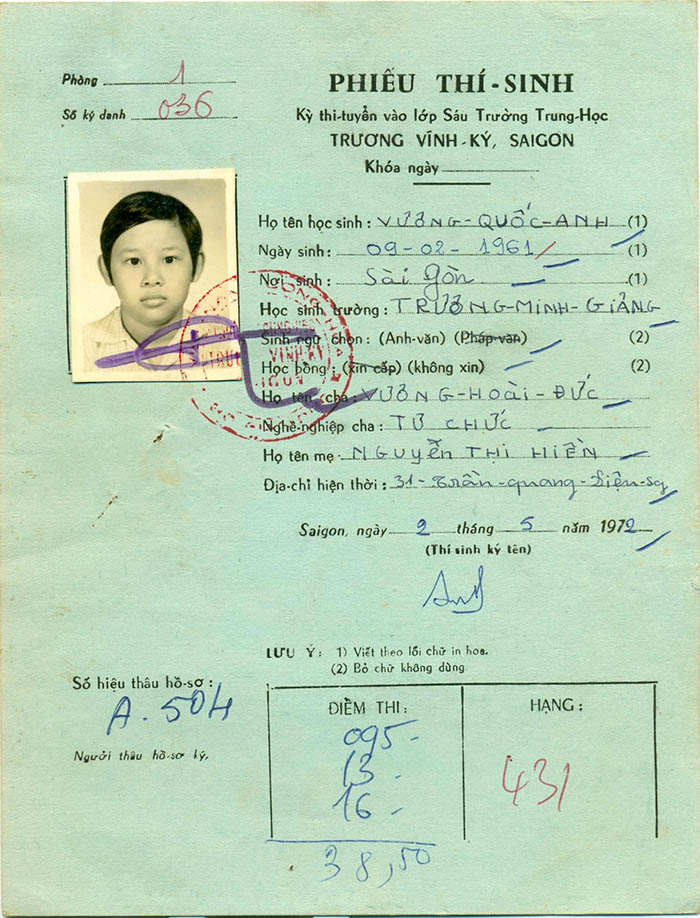 Phòng 1
Số ký danh 036
PHIẾU THÍ-SINH
Kỳ thi-tuyển vào lớp Sáu Trường Trung-Học
TRƯƠNG VĨNH-KÝ, SAIGON
Khóa ngày
Họ tên học sinh : VƯƠNG-QUỐC-ANH (1)
Ngày sinh : 09-02-1961 (1)
Nơi sinh : Sài gòn (1)
Học sinh trường : TRƯƠNG-MINH-GIẢNG
Sinh ngữ chọn : (Anh-văn) (Pháp-văn) (2)
Học bổng : (xin cấp) (không xin) (2)
Họ tên cha : VƯƠNG-HOÀI-ĐỨC
Nghề-nghiệp cha : TƯ CHỨC
Họ tên mẹ NGUYỄN THỊ HIỀN
Địa-chỉ hiện thời : 31-Trần-quang-Diệu-Sg
Saigon, ngày 2 tháng 5 năm 1972
(Thí sinh ký tên)
LƯU Ý : 1) Viết theo lối chữ in hoa.
(2) Bỏ chữ không dùng
Số hiệu thâu hồ-sơ :
A.504
Người thâu hồ-sơ ký,
ĐIỂM THI :
095-
13-
16-
38,50
HẠNG :
431